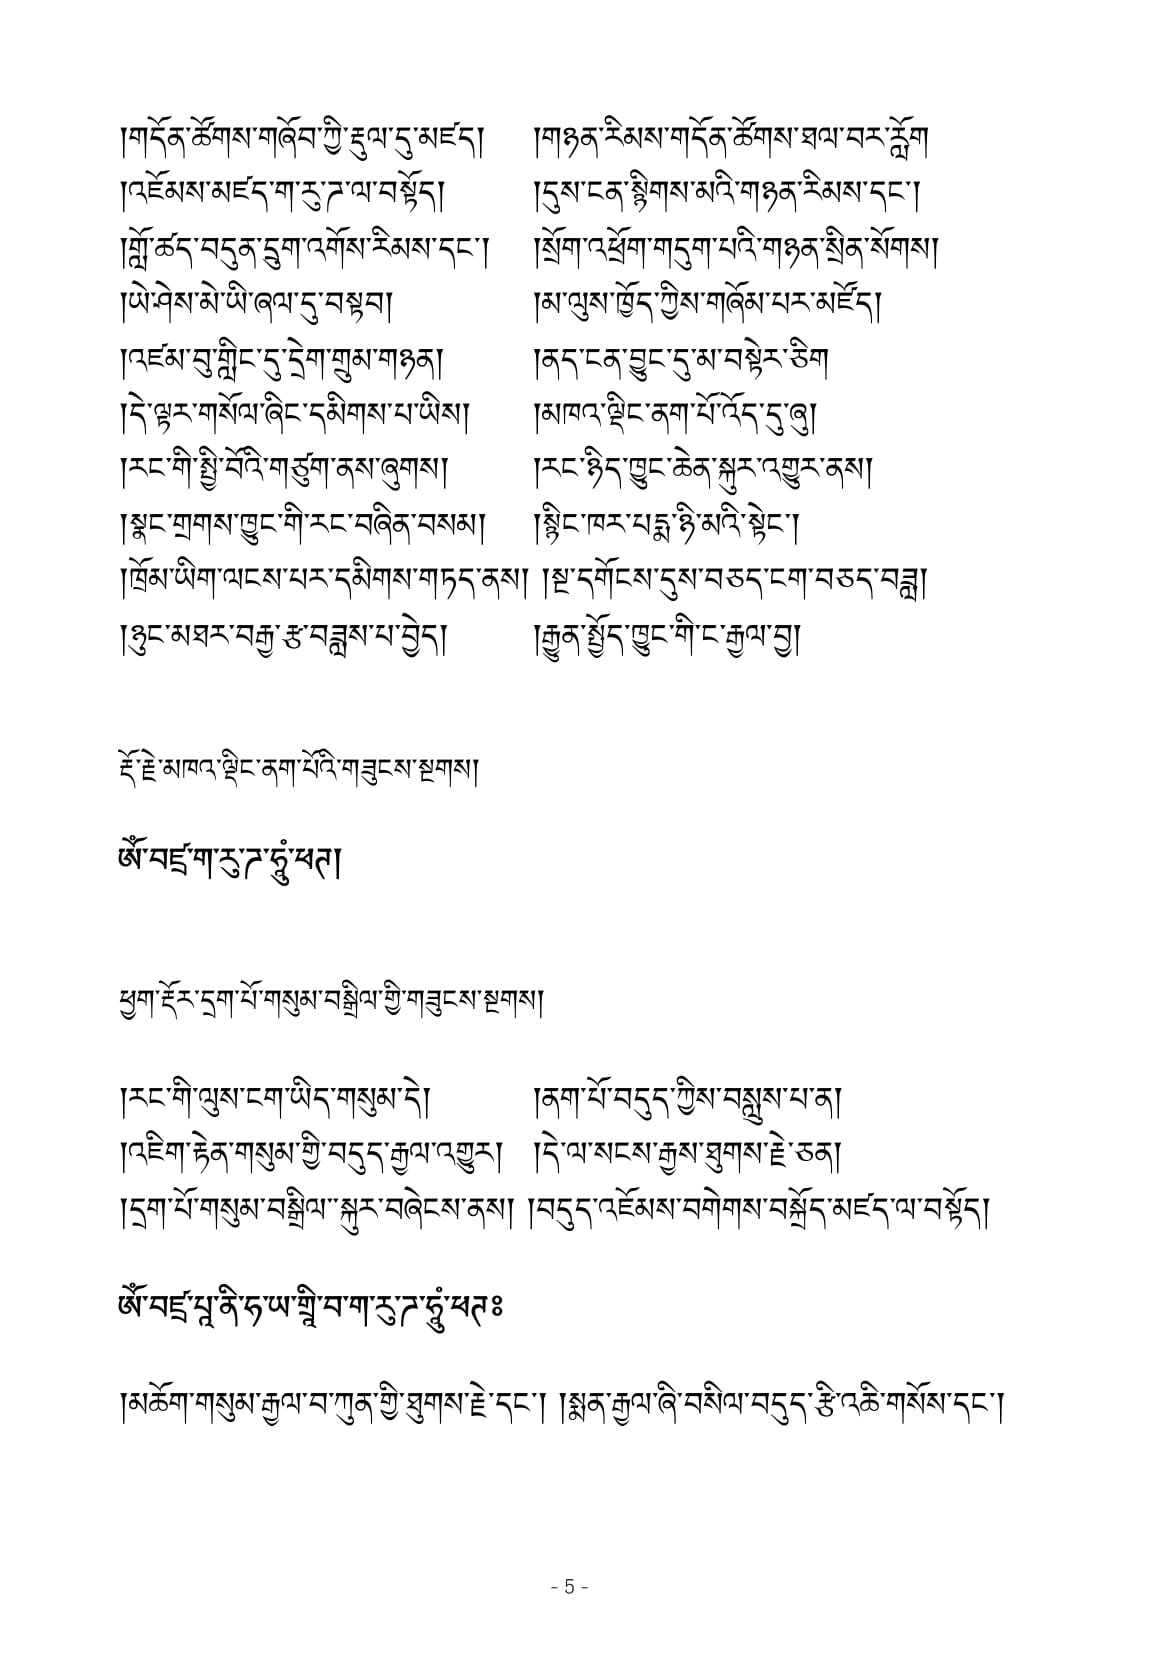 །གདོན་ཚོགས་གཞོབ་ཀྱི་རྡུལ་དུ་མཛད། །གཉན་རིམས་གདོན་ཚོགས་ཐལ་བར་རློག
།འཇོམས་མཛད་ག་རུ་ཌ་ལ་བསྟོད། །དུས་ངན་སྙིགས་མའི་གཉན་རིམས་དང་།
།གློ་ཚད་བདུན་དྲུག་འགོས་རིམས་དང་། །སྲོག་འཕྲོག་གདུག་པའི་གཉན་སྲིན་སོགས།
།ཡེ་ཤེས་མེ་ཡི་ཞལ་དུ་བསྟབ། །མ་ལུས་ཁྱོད་ཀྱིས་གཞོམ་པར་མཛོད།
།འཛམ་བུ་གླིང་དུ་དྲེག་གྲུམ་གཉན། །ནད་ངན་བྱུང་དུ་མ་བསྟེར་ཅིག
།དེ་ལྟར་གསོལ་ཞིང་དམིགས་པ་ཡིས། །མཁའ་ལྡིང་ནག་པོ་འོད་དུ་ཞུ།
།རང་གི་སྤྱི་བོའི་གཙུག་ནས་ཞུགས། །རང་ཉིད་ཁྱུང་ཆེན་སྐུར་འགྱུར་ནས།
།སྣང་གྲགས་ཁྱུང་གི་རང་བཞིན་བསམ། །སྙིང་ཁར་པདྨ་ཉི་མའི་སྟེང་།
།ཁྲོམ་ཡིག་ལངས་པར་དམིགས་གཏད་ནས། །སྔ་དགོངས་དུས་བཅད་ངག་བཅད་བཟླ།
།ཉུང་མཐར་བརྒྱ་རྩ་བཟླས་པ་བྱེད། །རྒྱུན་སྤྱོད་ཁྱུང་གི་ང་རྒྱལ་བྱ།
རྡོ་རྗེ་མཁའ་ལྡིང་ནག་པོའི་གཟུངས་སྔགས།
ཨོཾ་བཛྲ་ག་རུ་ཌ་ཧཱུྃ་ཕཊ།
ཕྱག་རྡོར་དྲག་པོ་གསུམ་བསྒྲིལ་གྱི་གཟུངས་སྔགས།
།རང་གི་ལུས་ངག་ཡིད་གསུམ་དེ། །ནག་པོ་བདུད་ཀྱིས་བསླུས་པ་ན།
།འཇིག་རྟེན་གསུམ་གྱི་བདུད་རྒྱལ་འགྱུར། །དེ་ལ་སངས་རྒྱས་ཐུགས་རྗེ་ཅན།
།དྲག་པོ་གསུམ་བསྒྲིལ་་སྐུར་བཞེངས་ནས། །བདུད་འཇོམས་བགེགས་བསྐྲོད་མཛད་ལ་བསྟོད།
ཨོཾ་བཛྲ་པཱ་ནི་ཧ་ཡ་གྲཱི་བ་ག་རུ་ཌ་ཧཱུྃ་ཕཊ༔
།མཆོག་གསུམ་རྒྱལ་བ་ཀུན་གྱི་ཐུགས་རྗེ་དང་། །སྨན་རྒྱལ་ཞི་བསིལ་བདུད་རྩི་འཆི་གསོས་དང་།
- 5 -